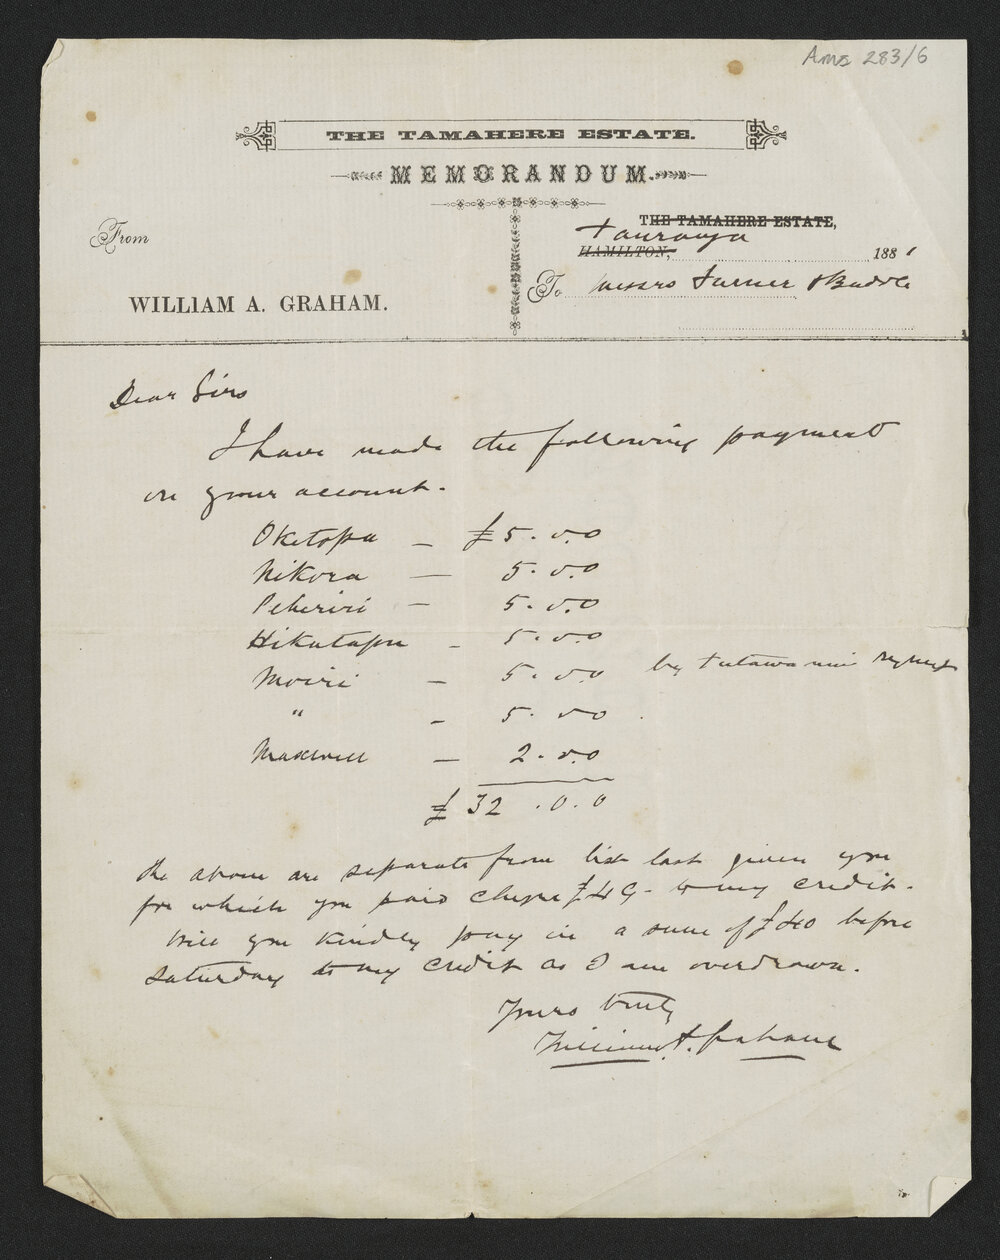 Ams 283/6
THE TAMAHERE ESTATE.
MEMORANDUM.
From
THE TAMAHERE ESTATE,
Tauranga
HAMILTON, 1881
To Messrs Turner & Buddle
WILLIAM A. GRAHAM.
Dear Sirs
I have made the following payment
on your account.
Oketopa — £5.0.0
Nikora — 5.0.0
Peheriri — 5.0.0
Hikutapu — 5.0.0
Moiri — 5.0.0 by Tutawa
" — 5.0.0
Maxwell — 2.0.0
£32.0.0
the above are separate from list last given you
for which you paid cheque £49- to my credit.
Will you kindly pay in a sum of £40 before
Saturday to my credit as I am overdrawn.
Yours truly
William A. Graham